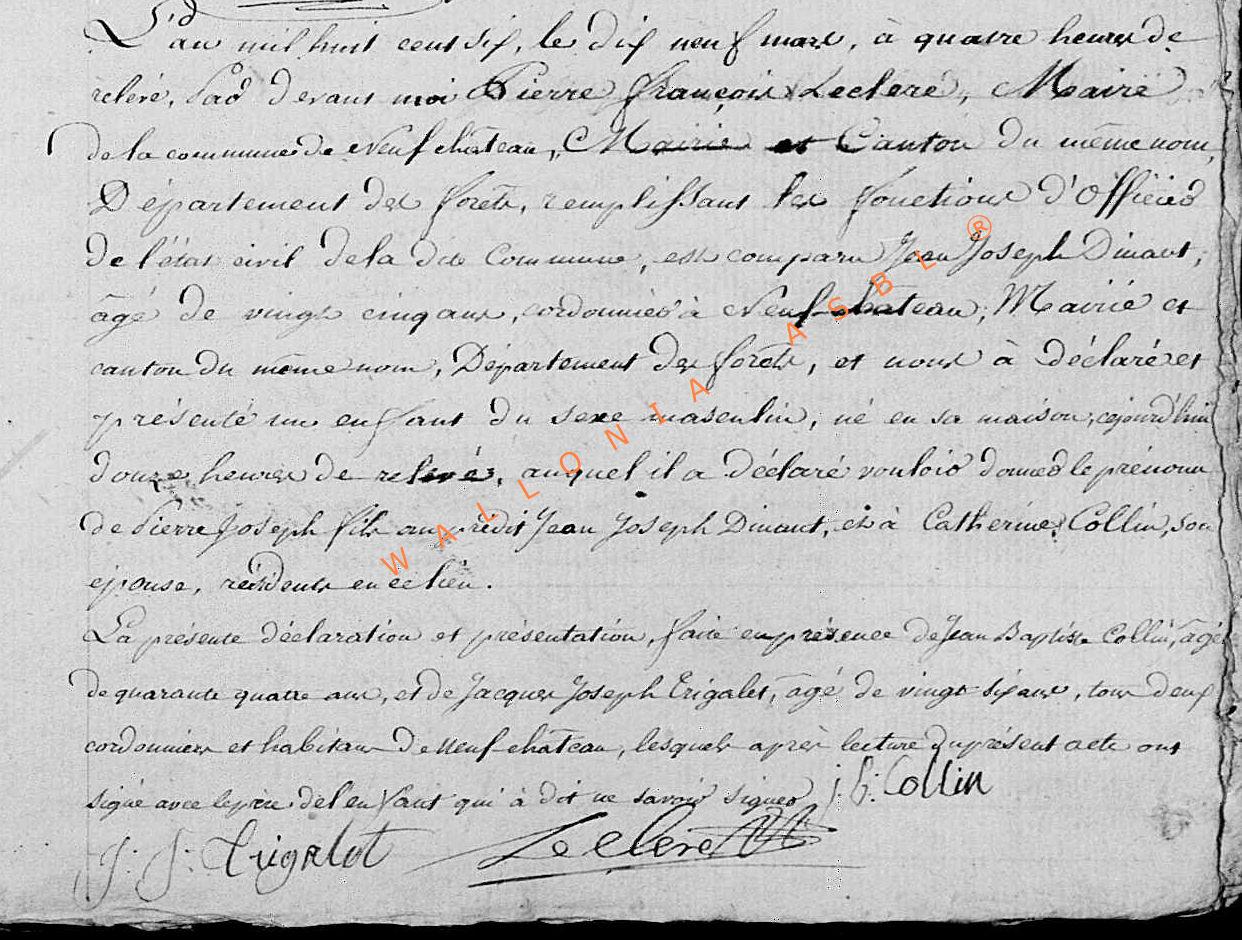 L'an mil huit cent six, le dix neuf mars, à quatre heures de
relevé, Pad devant moi Pierre François Leclerc, Maire
de la commune de Neufchâteau, Mairie et Canton du même nom,
Département des forêts, remplissant les fonctions d'Officier
de l'état civil de la dite Commune, est comparu Jean Joseph Dinant,
âgé de vingt cinq ans, cordonnier à Neufchateau, Mairie et
canton du même nom, Département des forêts, et nous à déclaré et
présenté un enfant du sexe masculin, né en sa maison, cejourd'hui
douze heures de relevé, auquel il a déclaré vouloir donner le prénom
de Pierre Joseph fils au prédit Jean Joseph Dinant, et à Catherine Collin, son
épouse, résidents en ce lieu.
La présente déclaration et présentation, faite en présence de Jean Baptiste Collin, âgé
de quarante quatre ans, et de Jacques Joseph Trigalet, âgé de vingt six ans, tous deux
cordonniers et habitans de Neufchâteau, lesquels après lecture du présent acte ont
signé avec le père de l'enfant qui à dit ne savoir signer j: b: Collin
J: J: trigalet Leclerc
WALLONIA ASBL ®